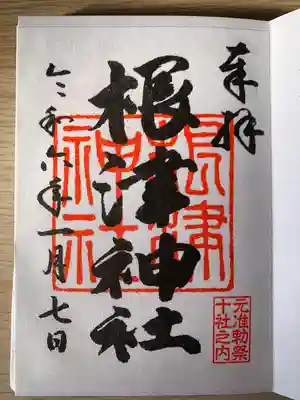 奉拝
根津神社
根津神社
元准勅祭
十社之内
令和六年一月七日